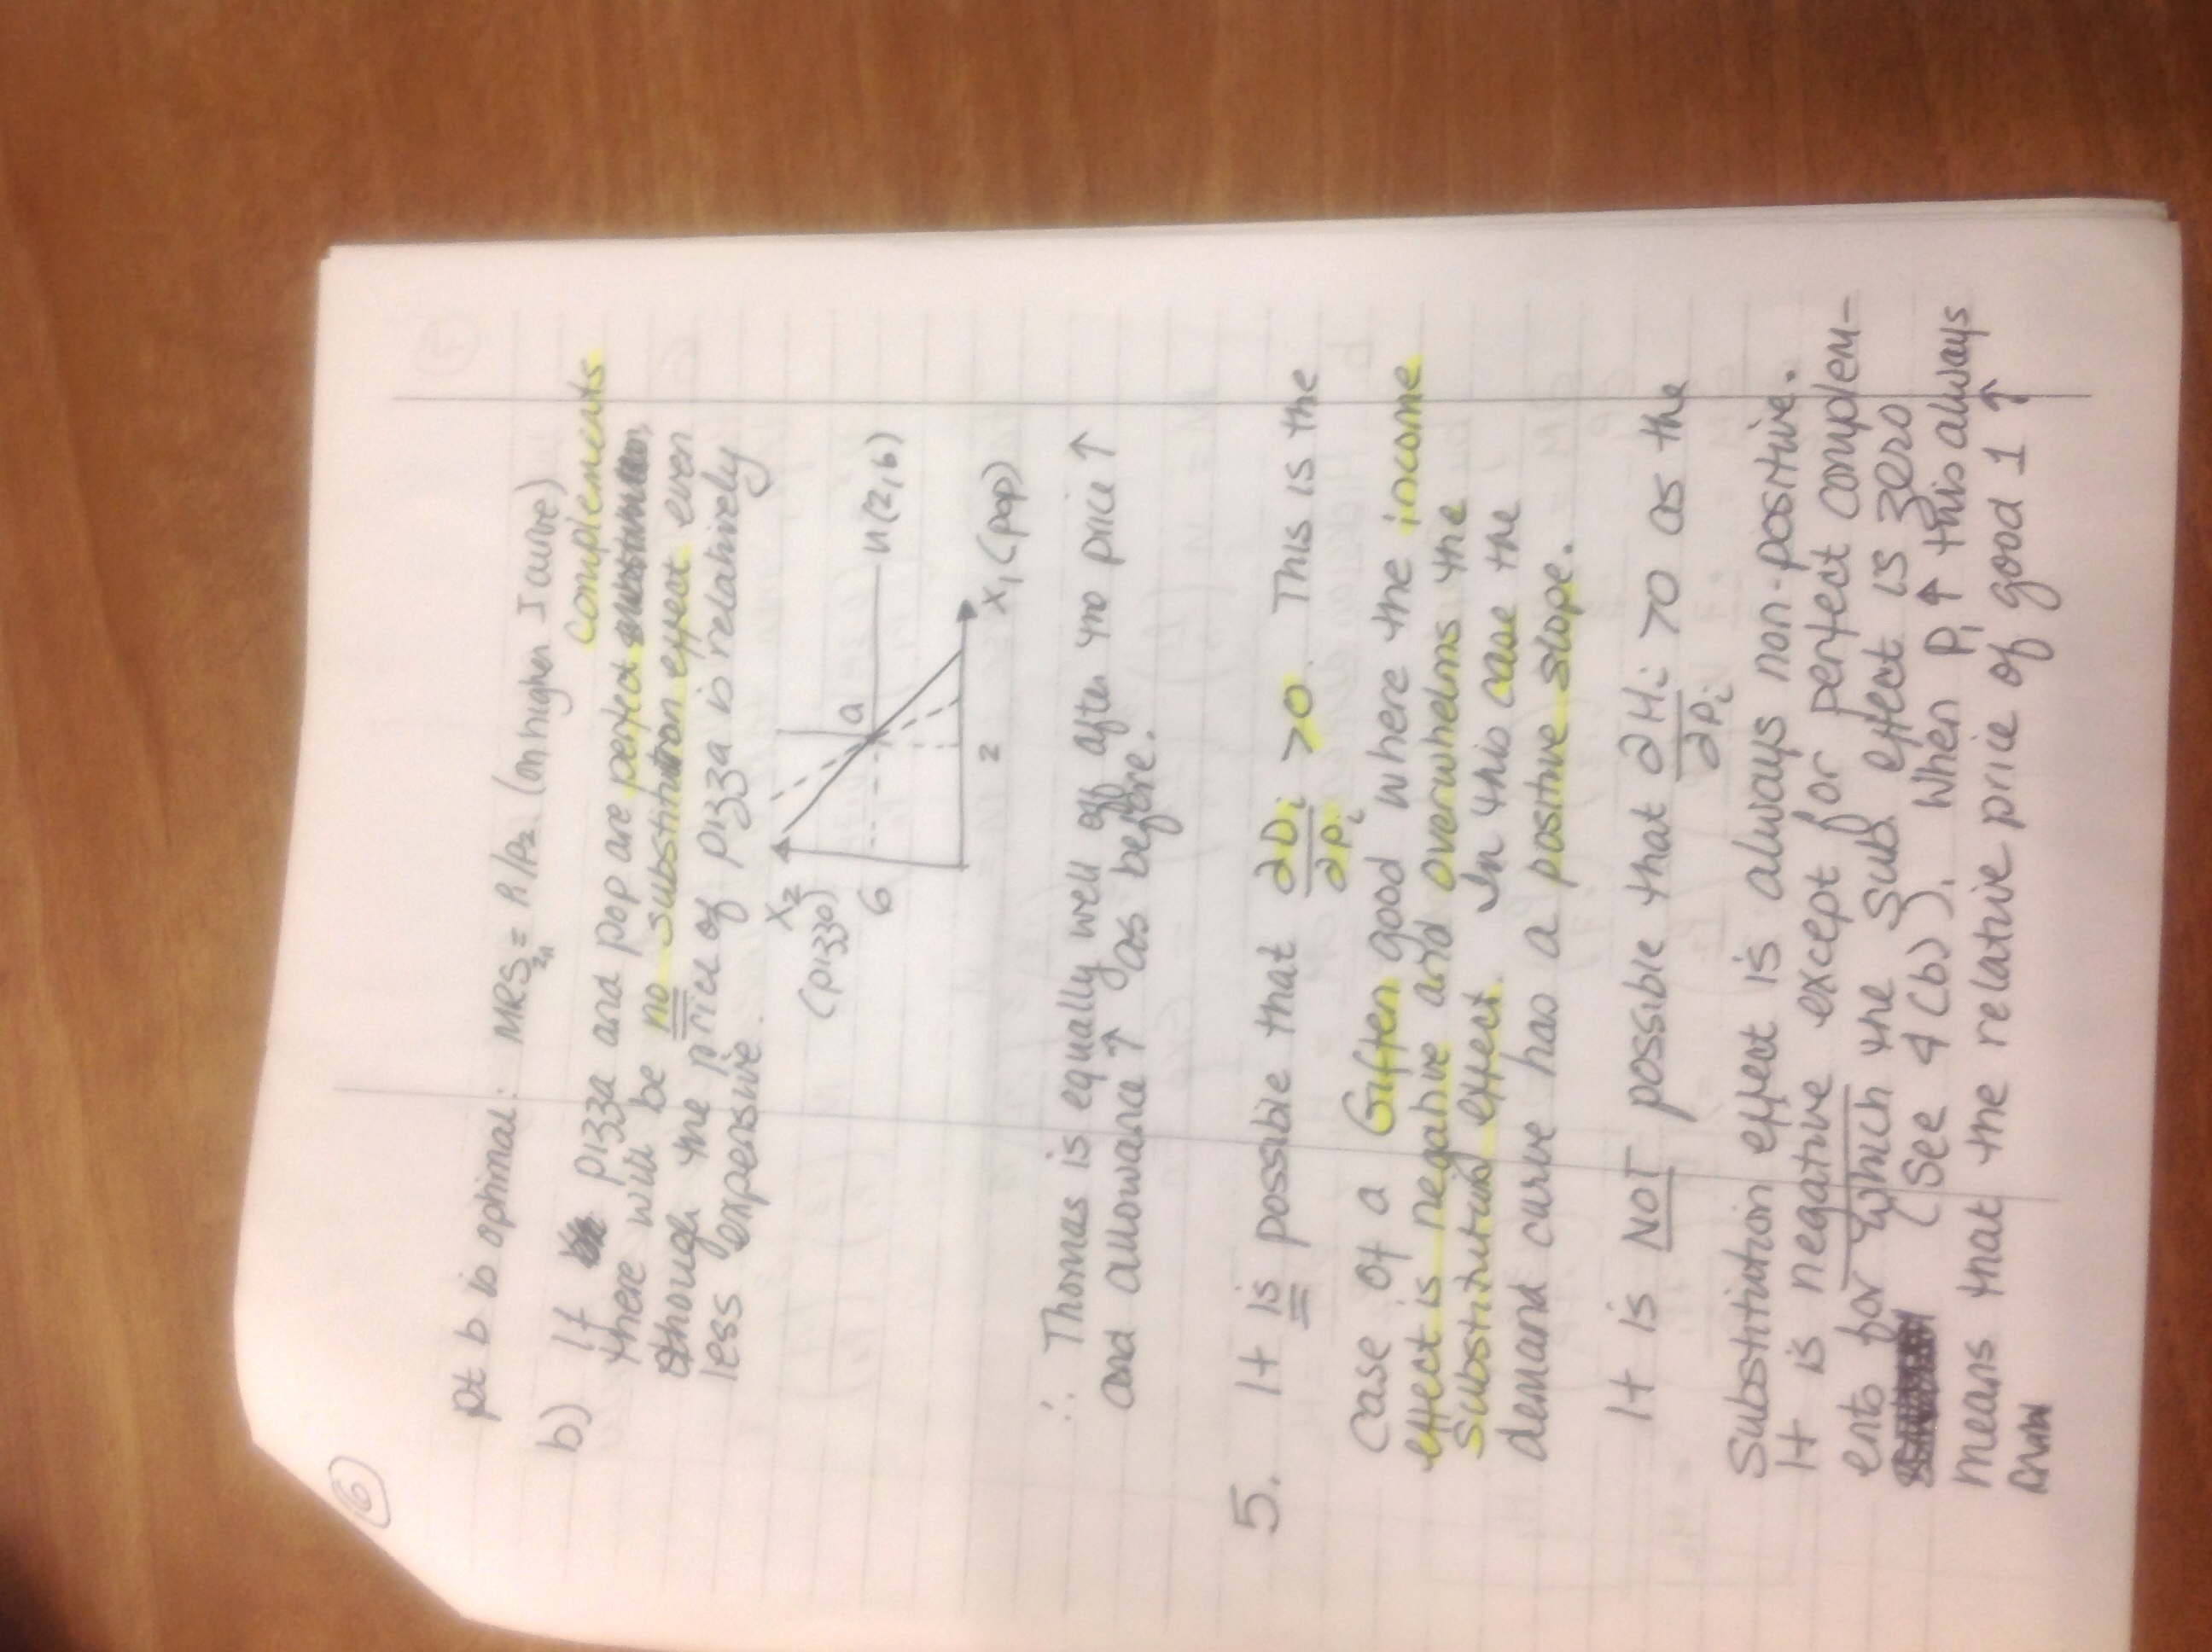 6
pt b is optimal: MRS₂₁ = P₁/P₂ (on higher I curve)
complements
b) If pizza and pop are perfect
there will be no substitution effect even
though the price of pizza is relatively
less expensive.
X₂
(pizza)
6
a
u(2,6)
2
X₁ (pop)
∴ Thomas is equally well off after the price ↑
and allowance ↑ as before.
5. It is possible that ∂Di/∂Pi >0. This is the
case of a Giffen good where the income
effect is negative and overwhelms the
substitution effect. In this case the
demand curve has a positive slope.
It is NOT possible that ∂Hi/∂Pi >0 as the
substitution effect is always non-positive.
It is negative except for perfect complem-
ents for which the sub effect is zero
(See 4(b)). When P₁ ↑ this always
means that the relative price of good 1 ↑